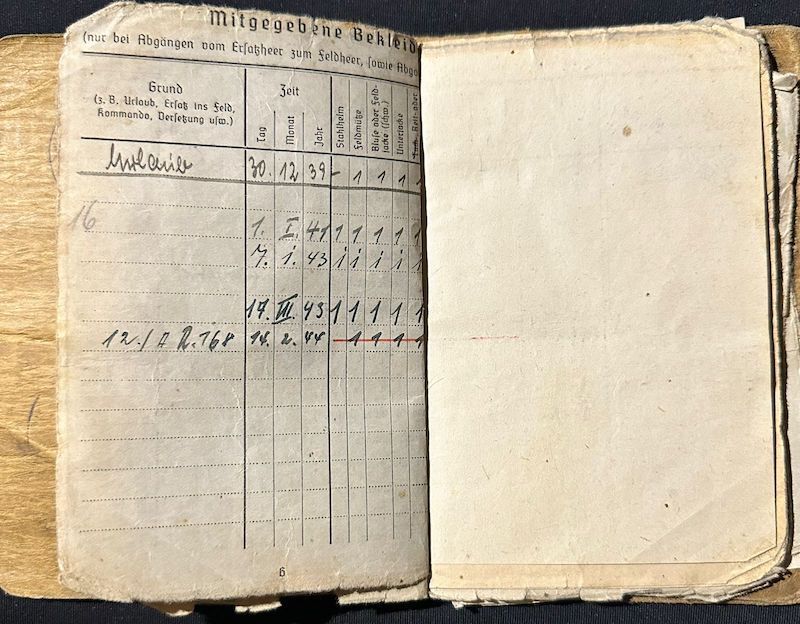 Mitgegebene Bekleid
(nur bei Abgängen vom Ersatzheer zum Feldheer, sowie Abga
Grund
(z. B. Urlaub, Ersatz ins Feld, Kommando, Versetzung usw.)
Zeit
Tag
Monat
Jahr
Stahlhelm
Feldmütze
Bluse oder Feldjacke (schw.)
Unterjacke
Reit- oder
Urlaub 30. 12 39 - 1 1 1 1
16
1. I. 41 1 1 1 1 1
7. i. 43 i i i i i
17. III. 43 1 1 1 1 1
12./A R. 168 14. 2. 44 — 1 1 1 1
6